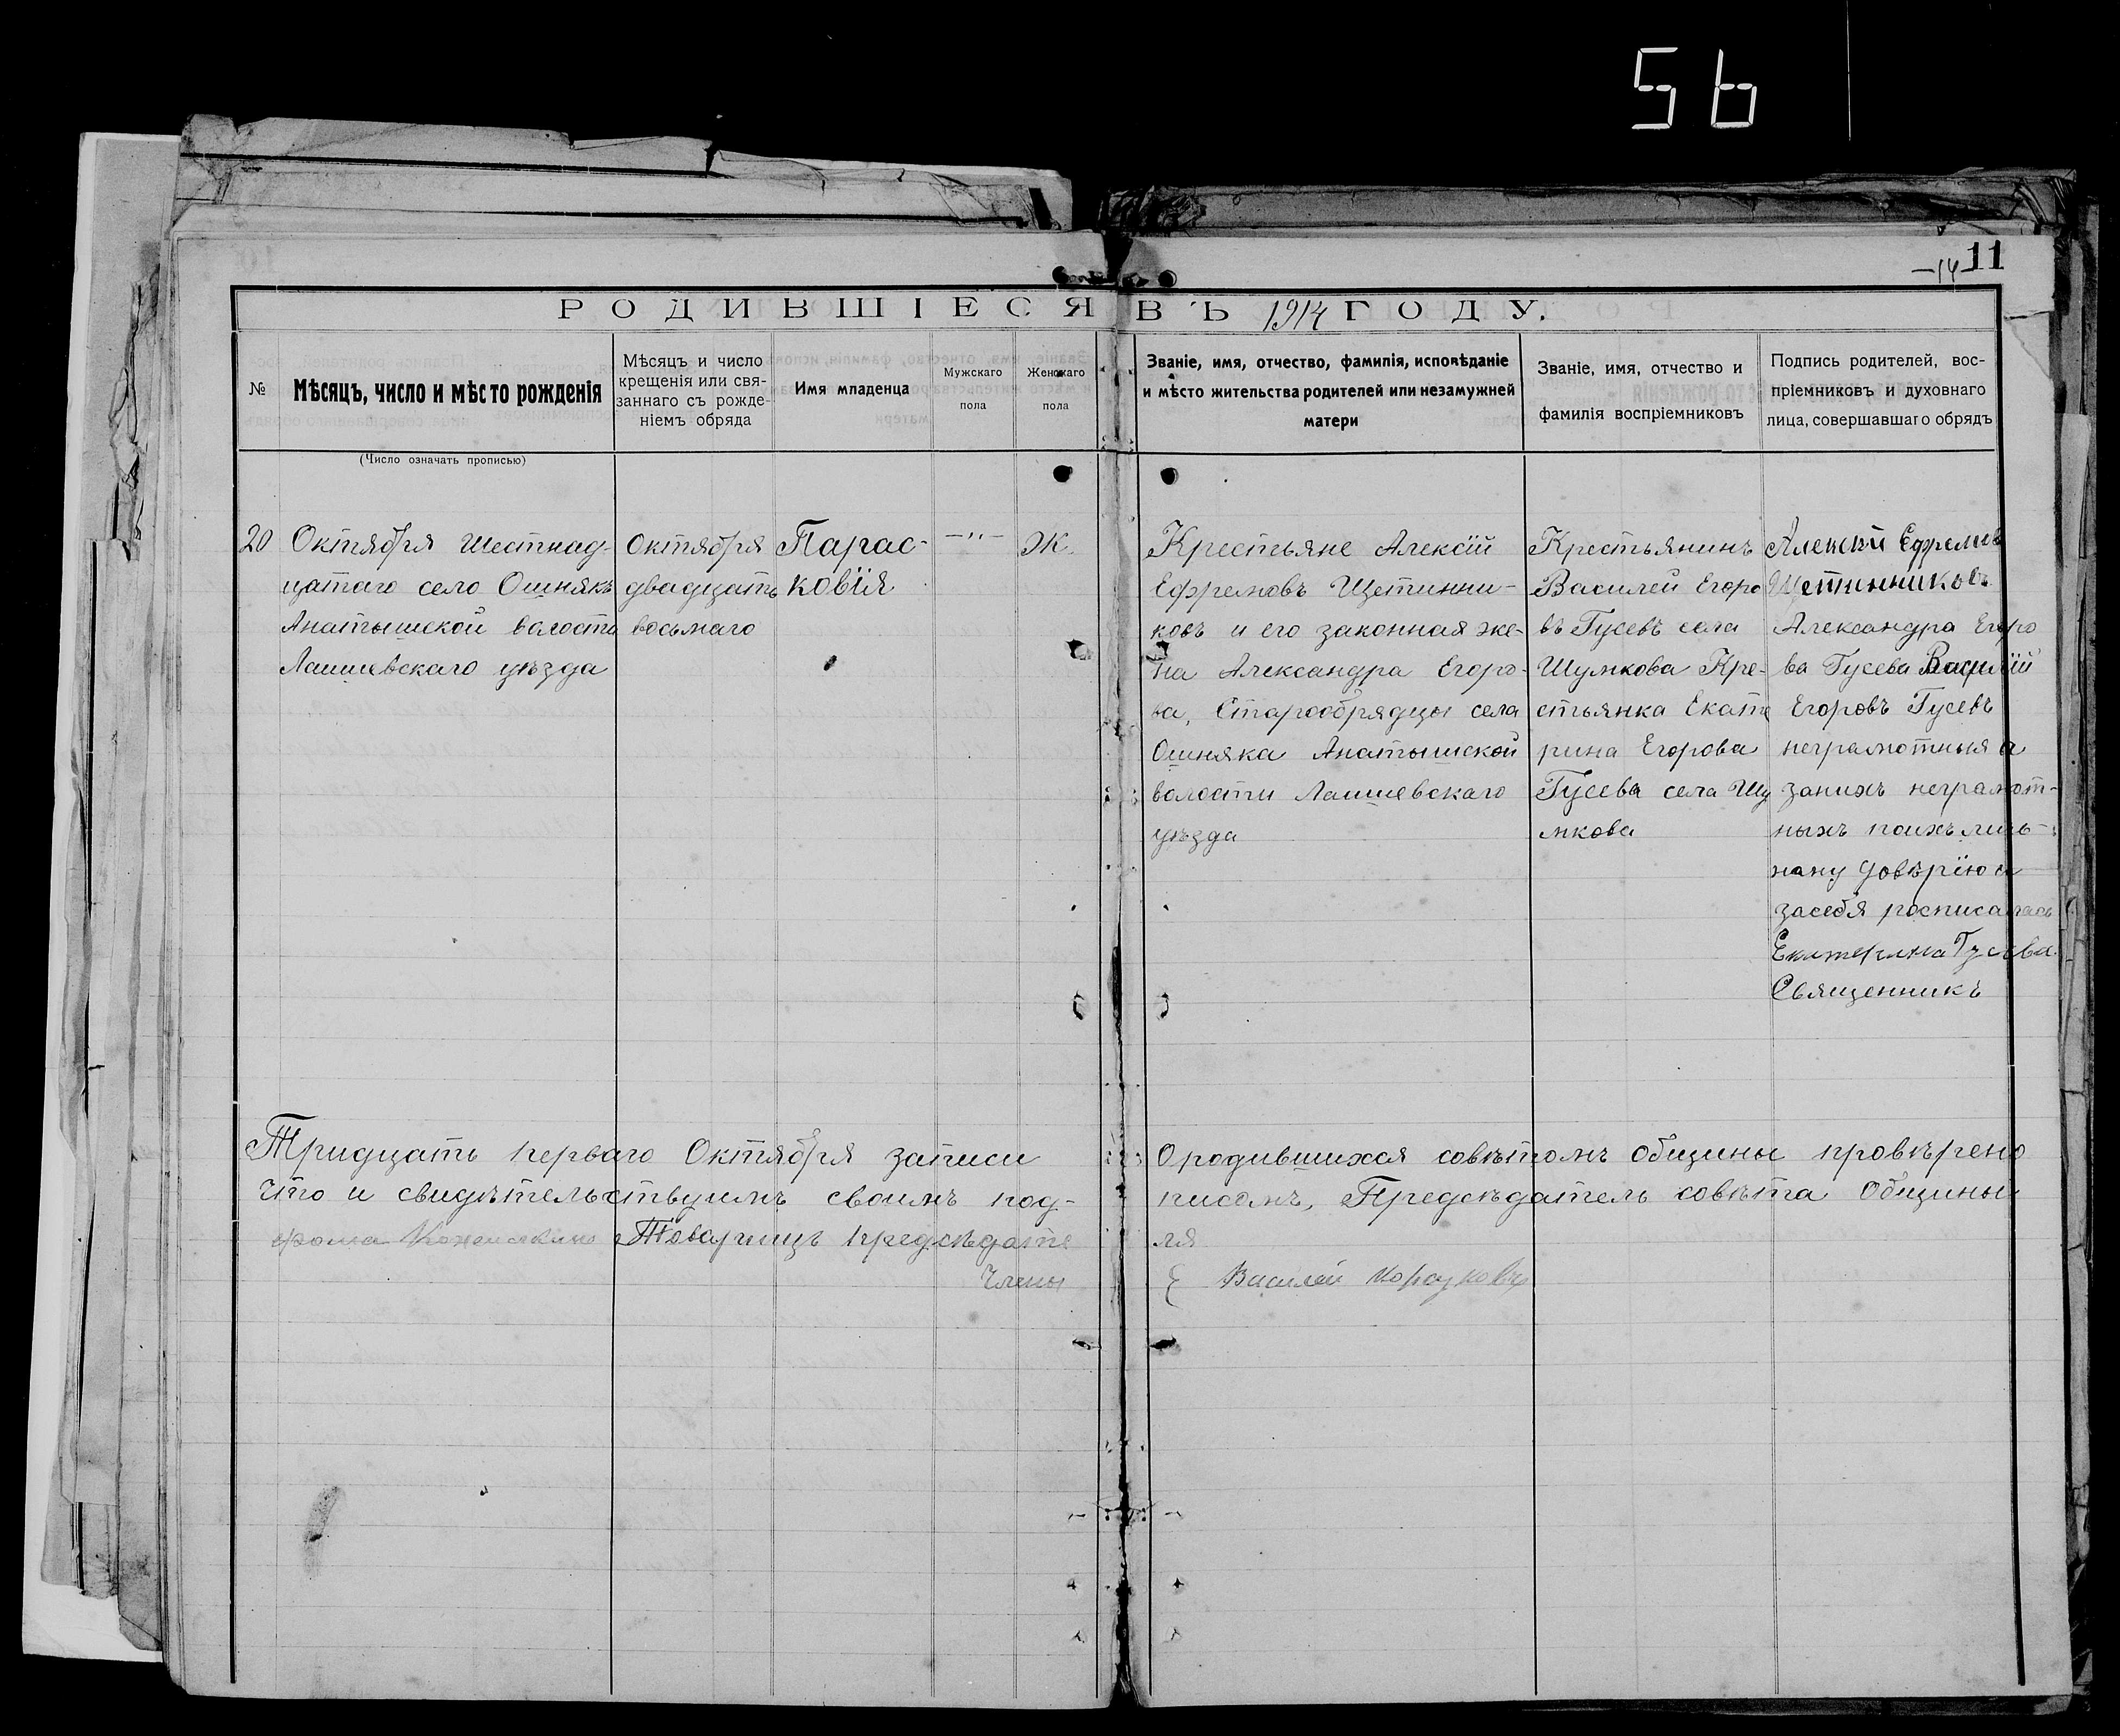 56
—14 11
РОДИВШІЕСЯ ВЪ 1914 ГОДУ.
№
Мѣсяцъ, число и мѣсто рожденія
(Число означать прописью)
Мѣсяцъ и число
крещенія или свя-
заннаго съ рожде-
ніемъ обряда
Имя младенца
Мужскаго
пола
Женскаго
пола
Званіе, имя, отчество, фамилія, исповѣданіе
и мѣсто жительства родителей или незамужней
матери
Званіе, имя, отчество и
фамилія воспріемниковъ
Подпись родителей, вос-
пріемниковъ и духовнаго
лица, совершавшаго обрядъ
20
Октября Шестнад-
цатаго село Ошнякъ
Анатышской волости
Лаишевскаго уѣзда
Октября
двадцать
восьмаго
Парас-
ковїя
—"—
Ж.
Крестьяне Алексій
Ефремовъ Щетинни-
ковъ и его законная же-
на Александра Егоро-
ва, Старообрядцы села
Ошняка Анатышской
волости Лаишевскаго
уѣзда
Крестьянинъ
Василей Егоро
въ Гусевъ села
Шумкова Кре-
стьянка Екате
рина Егорова
Гусева села Шу
мкова
Алексѣй Ефремовъ
Щетинниковъ
Александра Егоро
ва Гусева Василій
Егоровъ Гусевъ
неграмотныя а
занихъ неграмот-
ныхъ поихъ личь-
ному довѣрїю и
засебя росписалась
Екатерина Гусева.
Священникъ
Тридцать перваго Октября записи Ородившихся совѣтомъ Общины провѣрено
Что и свидѣтельствуимъ своимъ под- писомъ, Предсѣдатель совѣта Общины
фома Товарищъ предсѣдате ля
Члены { Василей